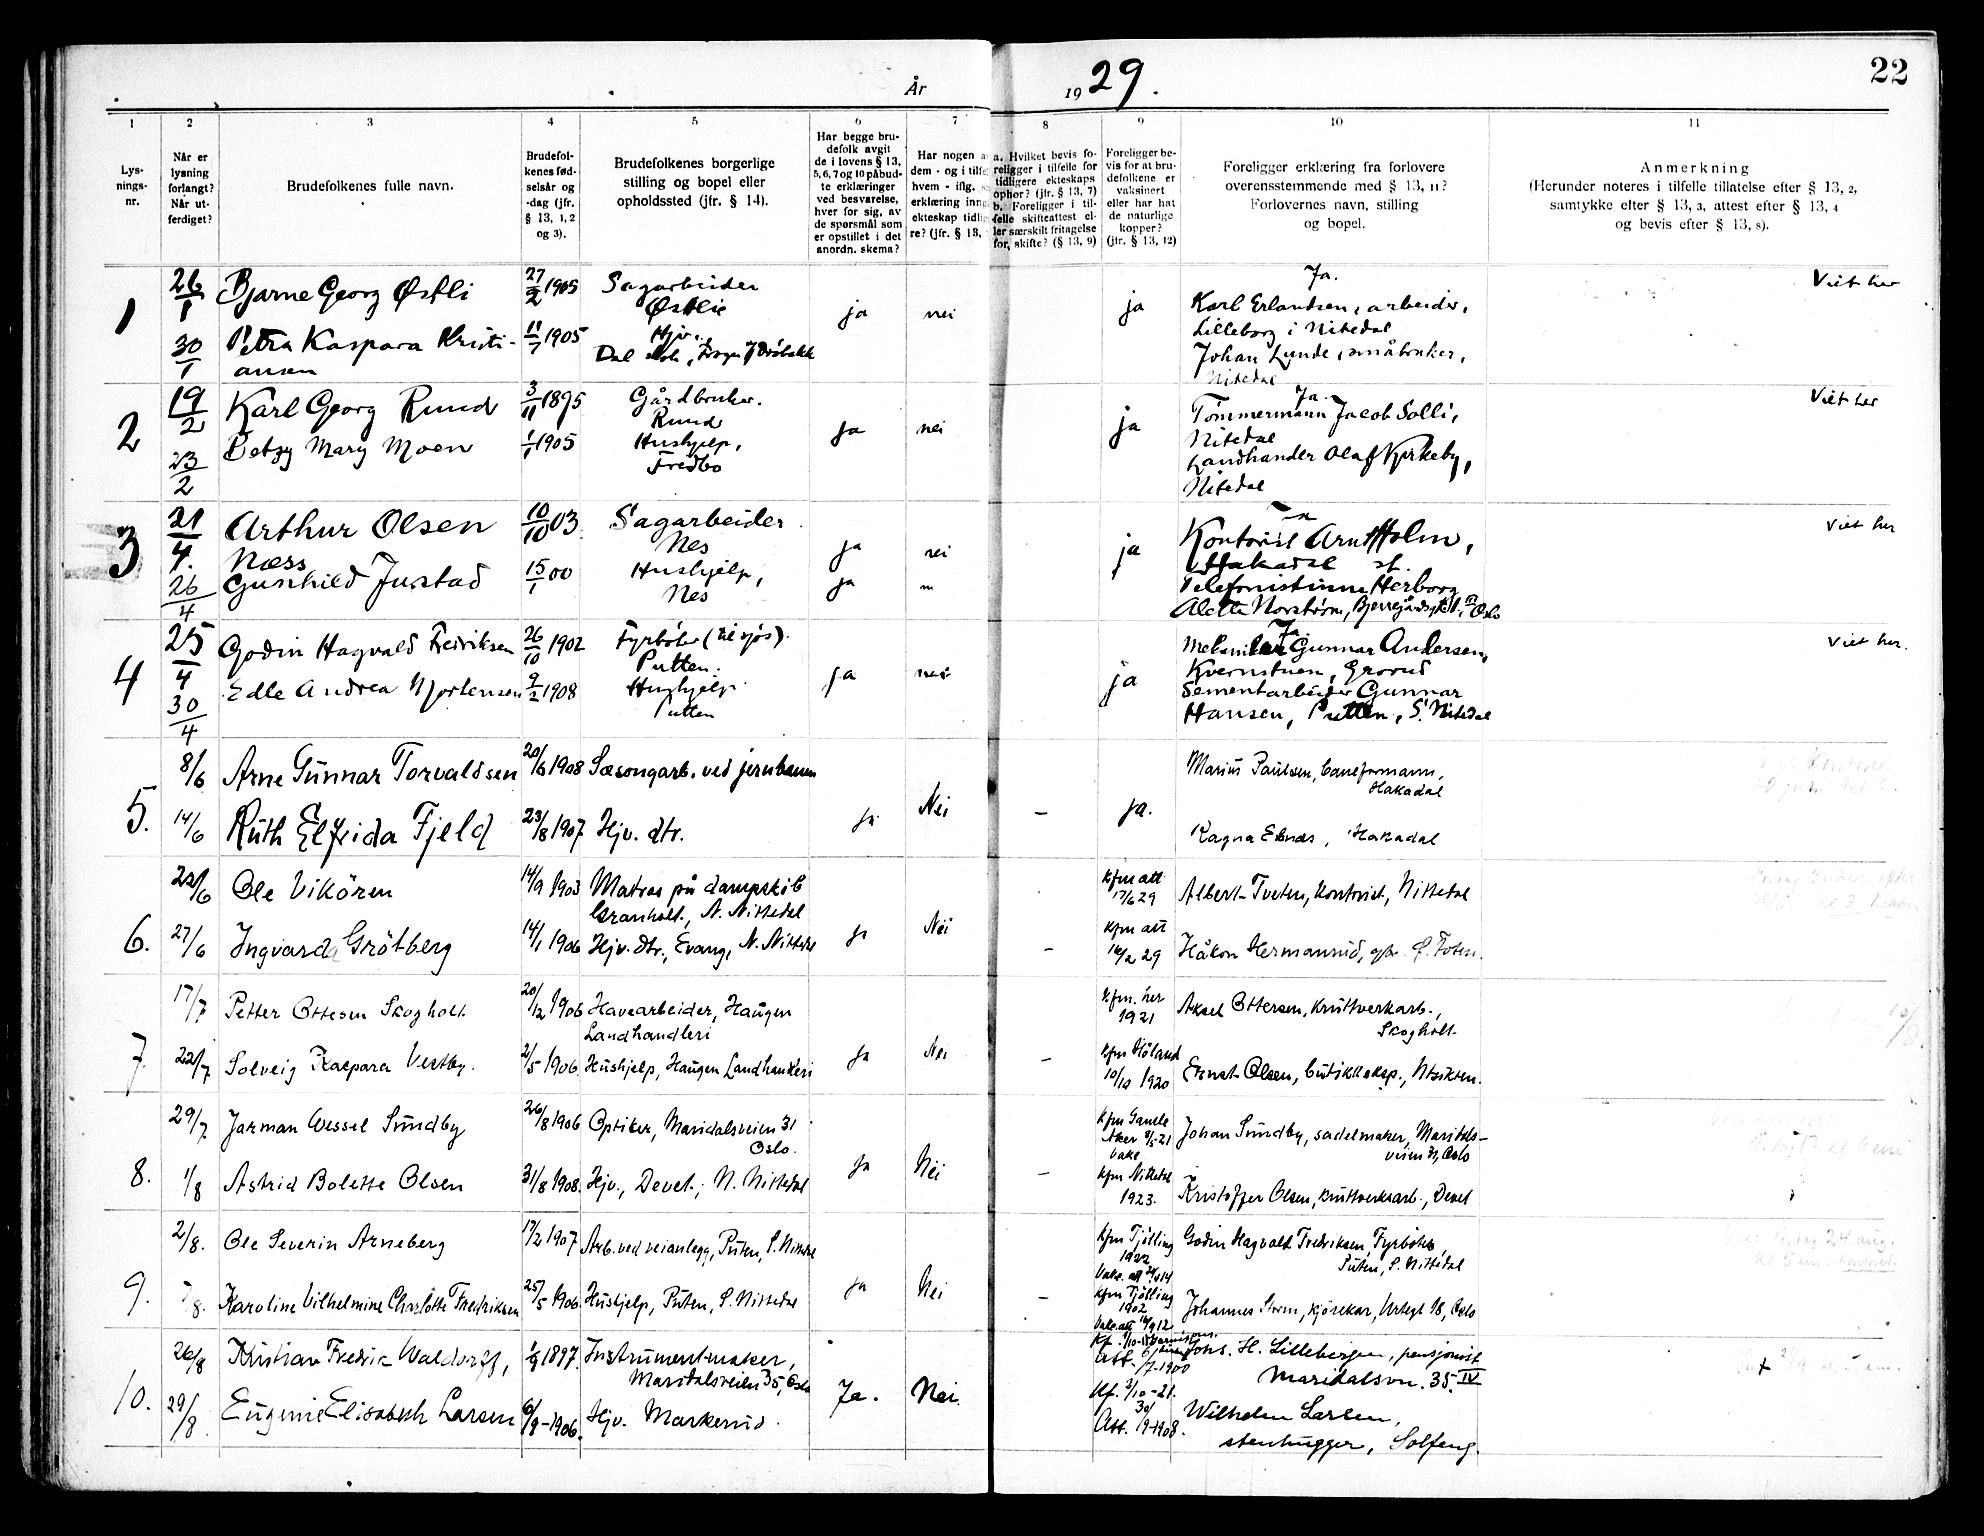 År 1929.
22
1
2
3
4
5
6
7
8
9
10
11
Lys-
nings-
nr.
Når er
lysning
forlangt?
Når ut-
ferdiget?
Brudefolkenes fulle navn.
Brudefol-
kenes fød-
selsår og
-dag (jfr.
§ 13, 1, 2
og 3).
Brudefolkenes borgerlige
stilling og bopel eller
opholdssted (jfr. § 14).
Har begge bru-
defolk avgit
de i lovens § 13,
5, 6, 7 og 10 påbud-
te erklæringer
ved besvarelse,
hver for sig, av
de spørsmål som
er opstillet i det
anordn. skema?
Har nogen a
dem - og i tilfe
hvem - iflg. s
erklæring inng
ekteskap tidlig
re? (jfr. § 13,
a. Hvilket bevis fo-
religger i tilfelle for
tidligere ekteskaps
ophør? (jfr. § 13, 7)
b. Foreligger i til-
felle skifteattest el-
ler særskilt fritagelse
for, skifte? (§ 13, 9)
Foreligger be-
vis for at bru-
defolkene er
vaksinert
eller har hat
de naturlige
kopper?
(jfr. § 13, 12)
Foreligger erklæring fra forlovere
overensstemmende med § 13, 11?
Forlovernes navn, stilling
og bopel.
Anmerkning
(Herunder noteres i tilfelle tillatelse efter § 13, 2,
samtykke efter § 13, 3, attest efter § 13, 4
og bevis efter § 13, 8).
1
26/1
Bjarne Georg Østli
27/2 1905
Sagarbeider
Østlie
ja
nei
ja
Ja.
Karl Erlandsen, arbeider,
Lilleborg i Nitedal
Viet her
30/1
Petra Kaspara Kristi-
ansen
11/1 1905
Hjv.
Johan Lunde, småbruker,
Nitedal
2
19/2
Karl Georg Rund
3/11 1895
Gårdbruker.
Rund
ja
nei
ja
Ja.
Tømmermann Jacob Solli,
Nitedal
Viet her
23/2
Betzy Mary Moen
1/1 1905
Hushjelp,
Fredbo
Landhandler Olaf Kjirkeby,
Nitedal
3
21/4.
Arthur Olsen
Næss
10/10 03.
Sagarbeider
Nes
ja
nei
ja
Kontorist Arnt Holm,
Hakadal st.
Viet her
26/4
Gunhild Justad
15/1 00
Hushjelp,
Nes
ja
Telefonistinne Herborg
Alette Norstrøm, Oslo
4
25/4
Godin Hagvald Fredriksen
26/10 1902
Fyrbøter (til sjøs).
Putten.
ja
nei
ja
Ja
Gunnar Andersen,
Kvernstuen, Grorud
Viet her.
30/4
Edle Andrea Mortensen
9/2 1908
Hushjelp
Putten
Sementarbeider Gunnar
Hansen, Putten, S. Nitedal
5.
8/6
Arne Gunnar Torvaldsen
20/6 1908
Sæsongarb. ved jernbanen
ja
Nei
–
ja.
Marius Paulsen, baneformann,
Hakadal
14/6
Ruth Elfrida Fjeld
23/8 1907
Hjv. dtr.
Ragna Ebnæs, Hakadal
6.
22/6
Ole Vikören
14/9 1903
Matros på dampskib
Granholt, N. Nittedal
ja
Nei
–
kfm att
17/6 29
Albert Tveten, kontorist, Nittedal
27/6
Ingvarda Grötberg
14/1 1906
Hjv. dtr., Evang, N. Nittedal
kfm att
16/2 29
Håkon Hermanrud, gbr. Ø. Toten.
7.
17/7
Petter Ottesen Skogholt
20/12 1906
Havearbeider, Haugen
Landhandleri
ja
Nei
–
kfm. her
1921
Aksel Ottersen, kruttverkarb.,
Skogholt
22/7
Solveig Kaspara Vestby.
2/5 1906.
Hushjelp, Haugen Landhandleri
kfm Höland
10/10 1920
Ernst Olsen, butikkeksp.,
8.
29/7
Jarman Wessel Sundby
26/8 1906
Optiker, Maridalsveien 31
Oslo.
ja
Nei
–
kfm Gamle
Aker 8/5-21
Johan Sundby, sadelmaker, Maridals-
veien 31, Oslo
1/8
Astrid Bolette Olsen
31/8 1908.
Hjv., Devet, N. Nittedal
kfm Nittedal
1923.
Kristoffer Olsen, kruttverksarb., Devet
9.
2/8.
Ole Severin Arneberg
17/2 1907
Arb. ved veianlegg, Puten, S. Nittedal
ja
Nei
–
kfm Tjölling
1922
Godin Hagvald Fredriksen, Fyrböter,
Puten, S. Nittedal
Karoline Vilhelmine Charlotte Fredriksen
25/5 1906.
Hushjelp, Puten, S. Nittedal
kfm Tjölling
Johannes Strøm, kjörekar, Urtegt 18, Oslo
10.
26/8
Kristian Fredrik Waldorff,
1/9 1897.
Instrumentmaker,
Maridalsveien 35, Oslo
Ja.
Nei.
Johs. H. Lillebergen, pensjonist
Maridalsvn. 35. IV
29/8
Eugenie Elisabeth Larsen
6/9-1906.
Hjv. Markerud.
Kf. 2/10-21.
Att. 30/9-1908.
Wilhelm Larsen,
stenhugger, Solfeng.